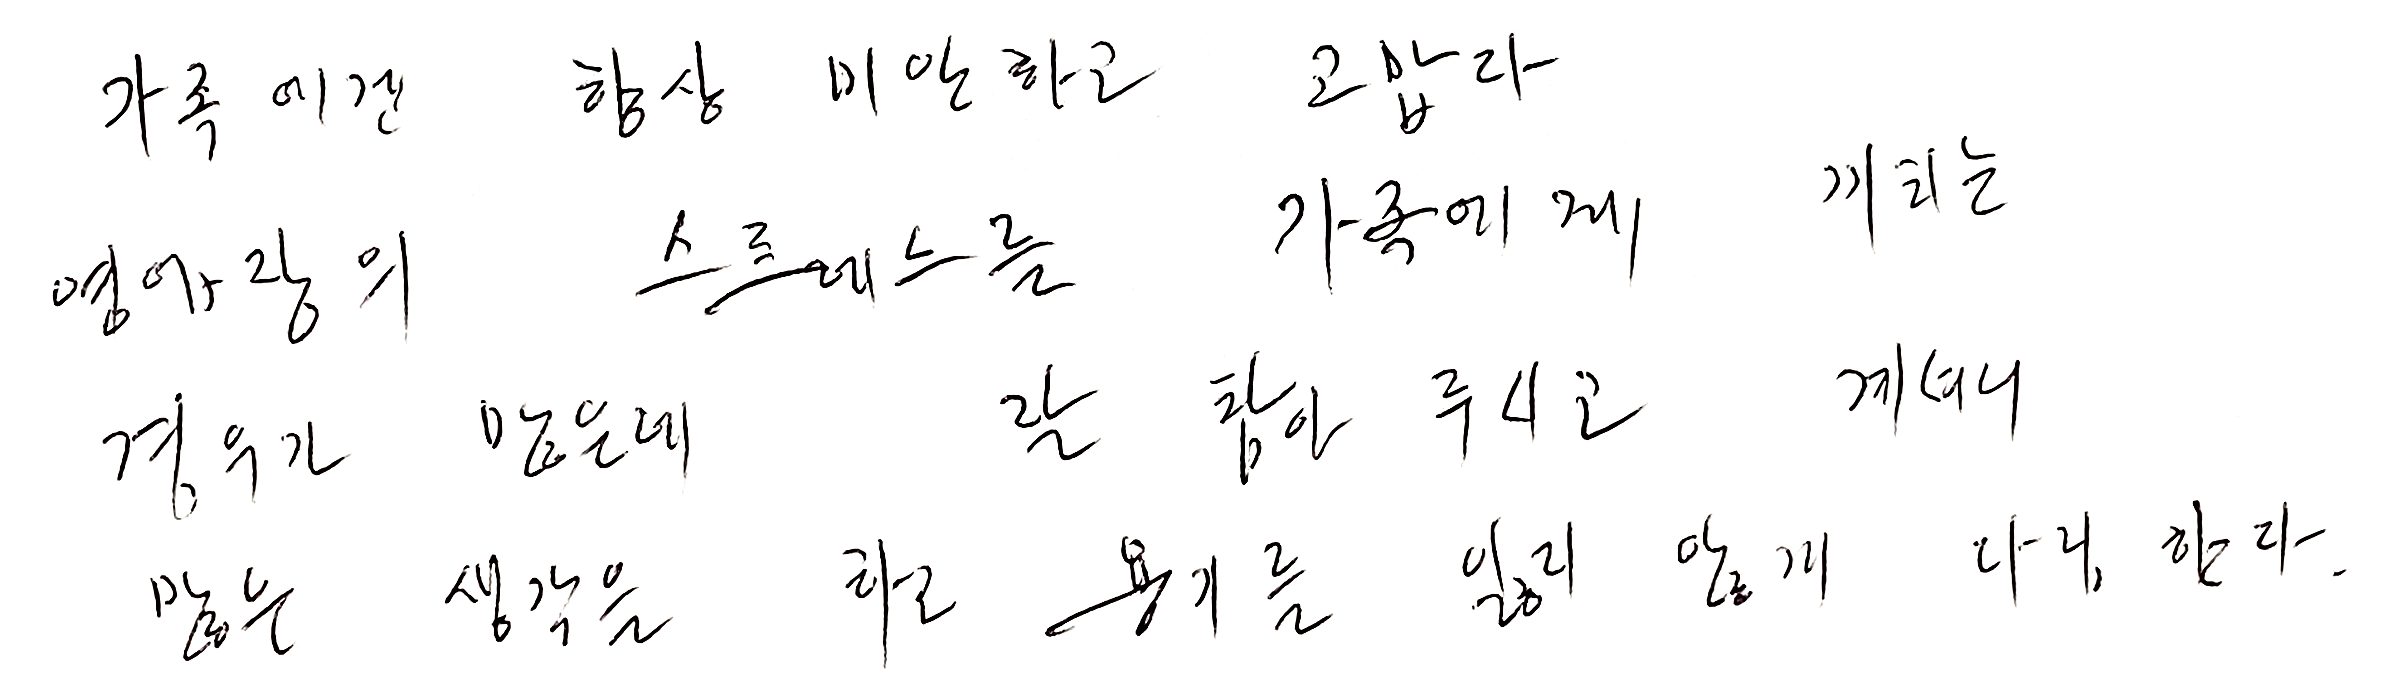 가족에겐 항상 미안하고 고맙다
영아랑의 스트레스를 가족에게 끼치는
경우가 많은데 잘 참아 주시고 계셔니
많은 생각을 하고 용기를 잃지 않게 다니 한다.